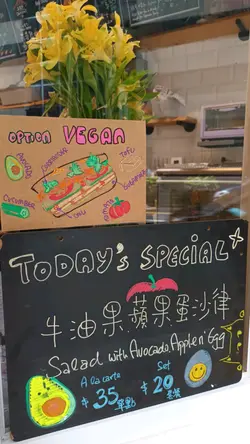 OPTION VEGAN
Avocado
TOFU
Cucumber
Today's SPECIAL
牛油果.蘋果蛋沙律
Salad with Avocado, Apple n' Egg
A la carte
$35 單點
Set
$20 套裝